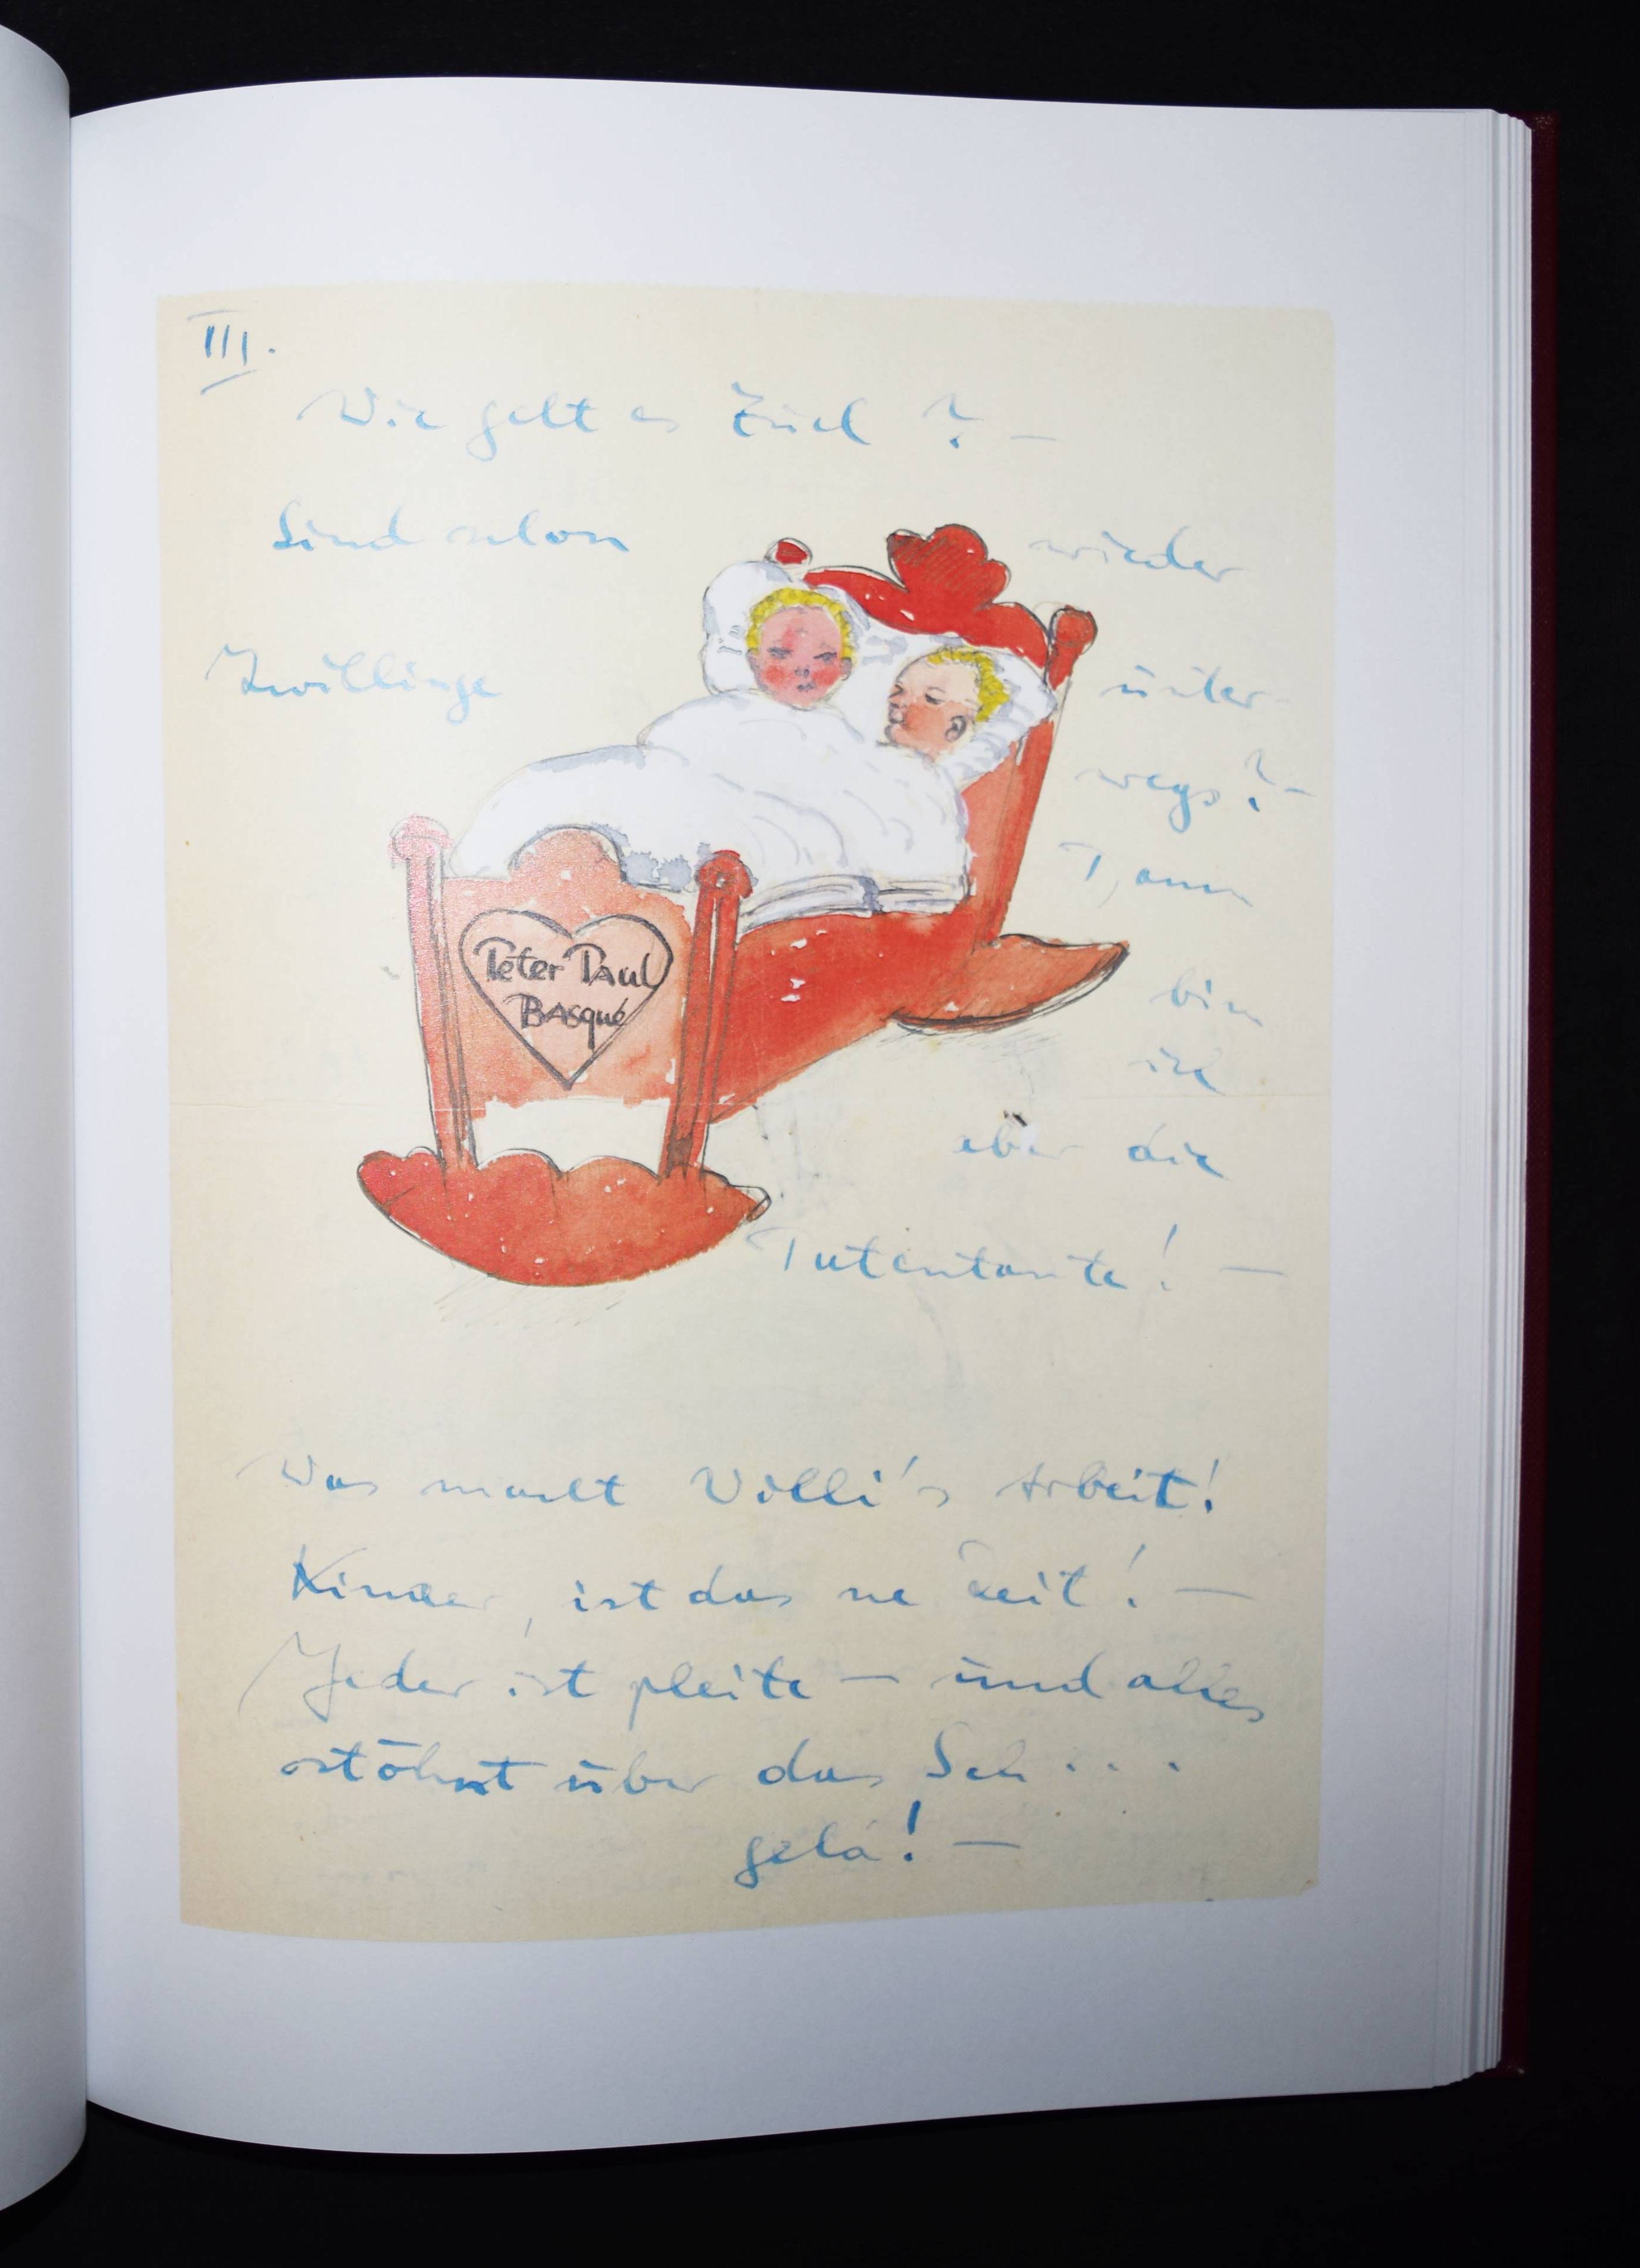 III.
Wie geht es Euch ? —
Sind schon wieder
Zwillinge unter-
wegs ? —
Dann
bin
ich
aber die
Patentante ! —
Peter Paul
Basqué
Was macht Willi's Arbeit !
Kinder, ist das ne Zeit ! —
Jeder ist pleite — und alles
stöhnt über das Sch . . .
geld ! —